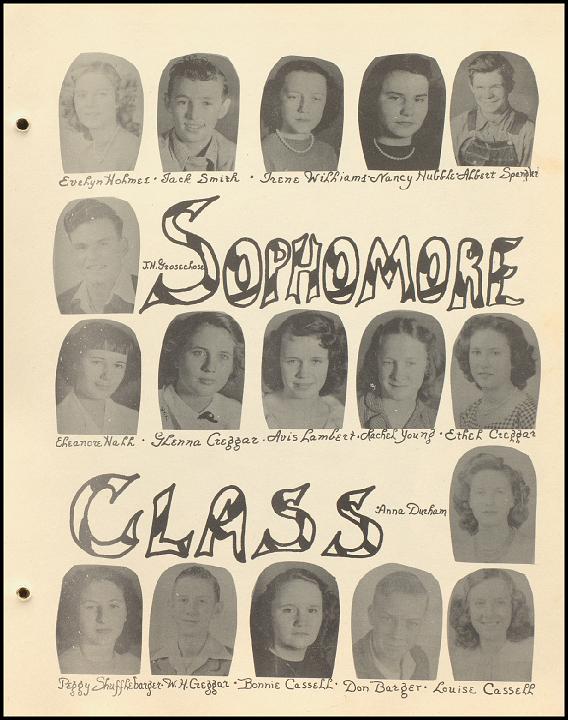 Evelyn Holmes · Jack Smith · Irene Williams · Nancy Hubble · Albert Spangler
J.H. Groseclose
SOPHOMORE
Eleanore Hall · Glenna Creggar · Avis Lambert · Rachel Young · Ethel Creggar
CLASS
Anna Durham
Peggy Shufflebarger · W.H. Creggar · Bonnie Cassell · Don Barger · Louise Cassell